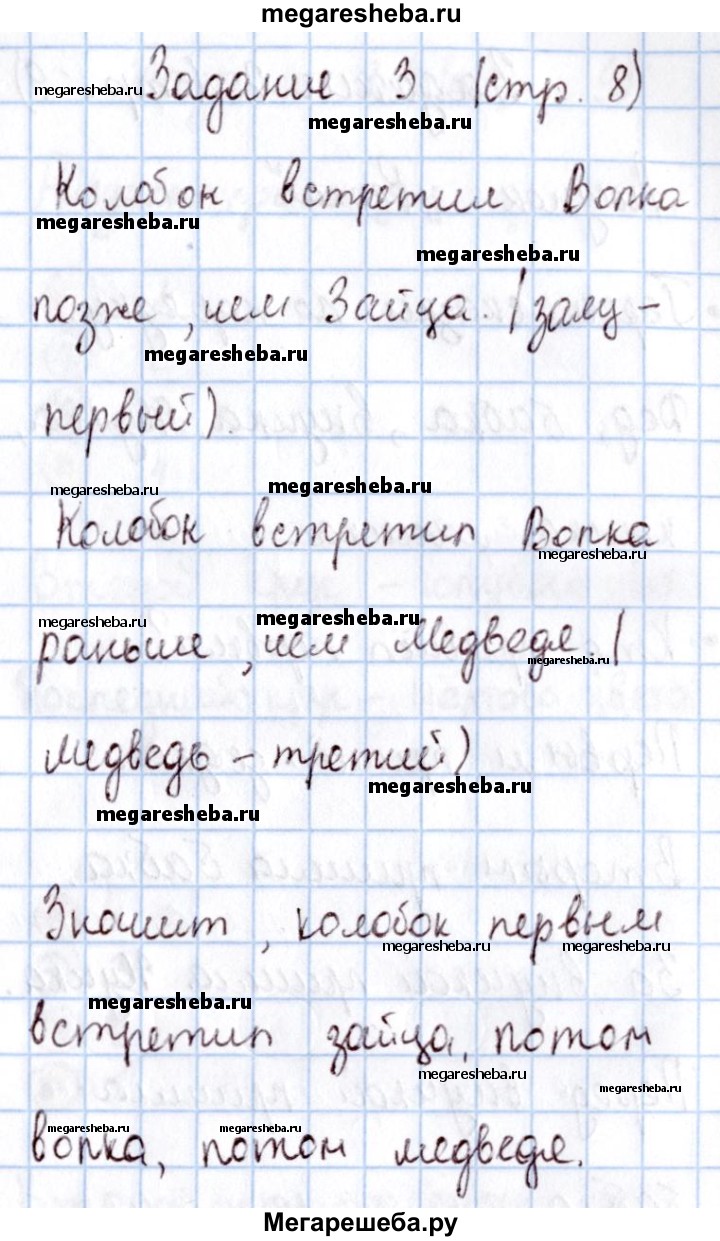 megaresheba.ru
megaresheba.ru Задание 3 (стр. 8)
megaresheba.ru
Колобок встретил Волка
megaresheba.ru
megaresheba.ru
позже, чем Зайца. (заяц -
megaresheba.ru
первый).
megaresheba.ru megaresheba.ru
Колобок встретил Волка
megaresheba.ru
megaresheba.ru megaresheba.ru
раньше, чем Медведя. (
megaresheba.ru
медведь - третий)
megaresheba.ru
megaresheba.ru
Значит, колобок первым
megaresheba.ru megaresheba.ru
megaresheba.ru
встретил зайца, потом
megaresheba.ru
megaresheba.ru
megaresheba.ru megaresheba.ru
волка, потом медведя.
Мегарешеба.ру